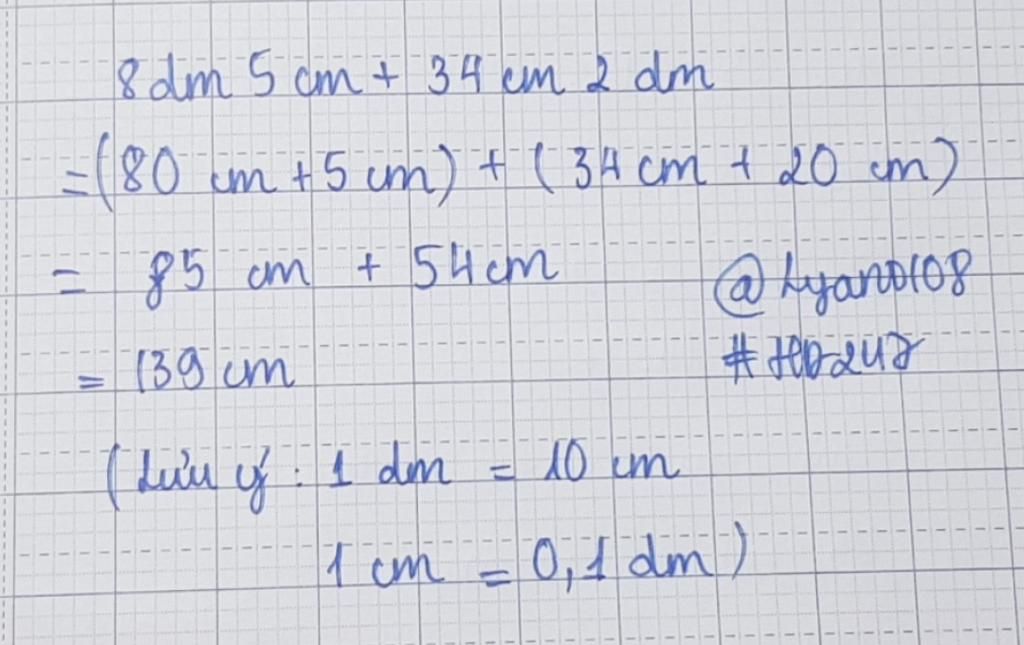 8dm 5 cm + 34 cm 2 dm
=(80 cm + 5 cm) + (34 cm + 20 cm)
= 85 cm + 54 cm
@Lyano108
= 139 cm
#HD247
(Lưu ý : 1 dm = 10 cm
1 cm = 0,1 dm)